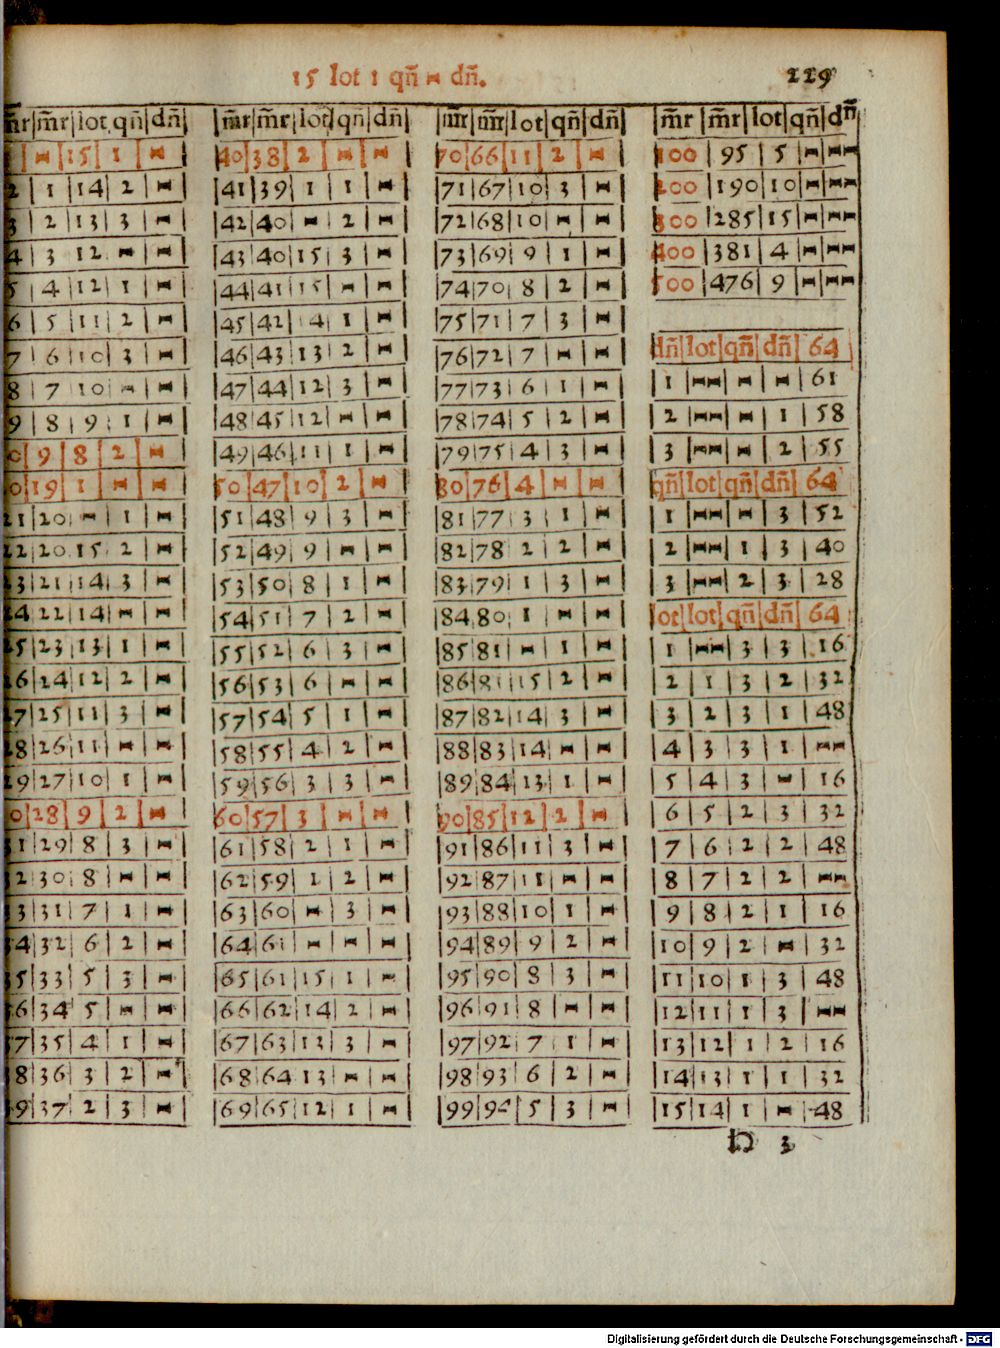 15 lot 1 qn̄ - dn̄.
229
m̄r|m̄r|lot|qn̄|dn̄|
|-|15|1|-|
2|1|14|2|-|
3|2|13|3|-|
4|3|12|-|-|
5|4|12|1|-|
6|5|11|2|-|
7|6|10|3|-|
8|7|10|-|-|
9|8|9|1|-|
0|9|8|2|-|
0|19|1|-|-|
21|20|-|1|-|
22|20|15|2|-|
23|21|14|3|-|
24|22|14|-|-|
25|23|13|1|-|
26|24|12|2|-|
27|25|11|3|-|
28|26|11|-|-|
29|27|10|1|-|
0|28|9|2|-|
31|29|8|3|-|
32|30|8|-|-|
33|31|7|1|-|
34|32|6|2|-|
35|33|5|3|-|
36|34|5|-|-|
37|35|4|1|-|
38|36|3|2|-|
39|37|2|3|-|
|m̄r|m̄r|lot|qn̄|dn̄|
40|38|2|-|-|
|41|39|1|1|-|
|42|40|-|2|-|
|43|40|15|3|-|
|44|41|15|-|-|
|45|42|14|1|-|
|46|43|13|2|-|
|47|44|12|3|-|
|48|45|12|-|-|
|49|46|11|1|-|
50|47|10|2|-|
|51|48|9|3|-|
|52|49|9|-|-|
|53|50|8|1|-|
|54|51|7|2|-|
|55|52|6|3|-|
|56|53|6|-|-|
|57|54|5|1|-|
|58|55|4|2|-|
|59|56|3|3|-|
60|57|3|-|-|
|61|58|2|1|-|
|62|59|1|2|-|
|63|60|-|3|-|
|64|61|-|-|-|
|65|61|15|1|-|
|66|62|14|2|-|
|67|63|13|3|-|
|68|64|13|-|-|
|69|65|12|1|-|
|m̄r|m̄r|lot|qn̄|dn̄|
70|66|11|2|-|
|71|67|10|3|-|
|72|68|10|-|-|
|73|69|9|1|-|
|74|70|8|2|-|
|75|71|7|3|-|
|76|72|7|-|-|
|77|73|6|1|-|
|78|74|5|2|-|
|79|75|4|3|-|
80|76|4|-|-|
|81|77|3|1|-|
|82|78|2|2|-|
|83|79|1|3|-|
|84|80|1|-|-|
|85|81|-|1|-|
|86|81|15|2|-|
|87|82|14|3|-|
|88|83|14|-|-|
|89|84|13|1|-|
90|85|12|2|-|
|91|86|11|3|-|
|92|87|11|-|-|
|93|88|10|1|-|
|94|89|9|2|-|
|95|90|8|3|-|
|96|91|8|-|-|
|97|92|7|1|-|
|98|93|6|2|-|
|99|94|5|3|-|
|m̄r|m̄r|lot|qn̄|dn̄
100|95|5|-|--
200|190|10|-|--
300|285|15|-|--
400|381|4|-|--
500|476|9|-|--
dn̄|lot|qn̄|dn̄|64
|1|--|-|-|61
|2|--|-|1|58
|3|--|-|2|55
qn̄|lot|qn̄|dn̄|64
|1|--|-|3|52
|2|--|1|3|40
|3|--|2|3|28
lot|lot|qn̄|dn̄|64
|1|--|3|3|16
|2|1|3|2|32
|3|2|3|1|48
|4|3|3|1|--
|5|4|3|-|16
|6|5|2|3|32
|7|6|2|2|48
|8|7|2|2|--
|9|8|2|1|16
|10|9|2|-|32
|11|10|1|3|48
|12|11|1|3|--
|13|12|1|2|16
|14|13|1|1|32
|15|14|1|-|48
3
Digitalisierung gefördert durch die Deutsche Forschungsgemeinschaft - DFG